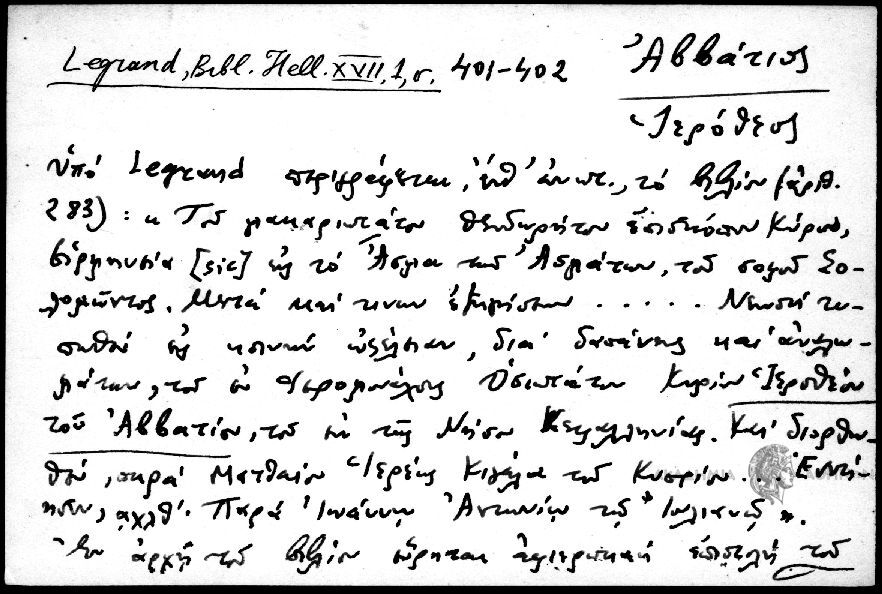 Legrand, Bibl. Hell. XVII, 1, σ. 401-402
Ἀββάτιος
Ἱερόθεος
Ὑπό Legrand περιγράφεται, ἐπ' ἀνωτ., τό βιβλίον (ἀριθ.
283) : « Τοῦ μακαριωτάτου Θεοδωρήτου ἐπισκόπου Κύρου,
ἑἱρμηνεία [sic] εἰς τό ᾎσμα τῶν ᾈσμάτων, τοῦ σοφοῦ Σο-
λομῶντος. Μετά καί τινων ἐξηγήσεων . . . . . Νεωστί τυ-
πωθέν εἰς κοινήν ὠφέλειαν, διά δαπάνης καί ἀναλω-
μάτων, τοῦ ἐν Ἱερομονάχοις Ὁσιωτάτου Κυρίου Ἱεροθέου
τοῦ Ἀββατίου, τοῦ ἐκ τῆς Νήσου Κεφαλληνίας. Καί διορθω-
θέν, παρά Ματθαίου Ἱερέως Κιγάλα τοῦ Κυπρίου ... Ἐνετί-
ησιν, αχλθ'. Παρά Ἰωάννῃ Ἀντωνίῳ τῷ Ἰουλιανῷ ».
Ἐν ἀρχῇ τοῦ βιβλίου εὕρηται ἀφιερωτική ἐπιστολή τοῦ